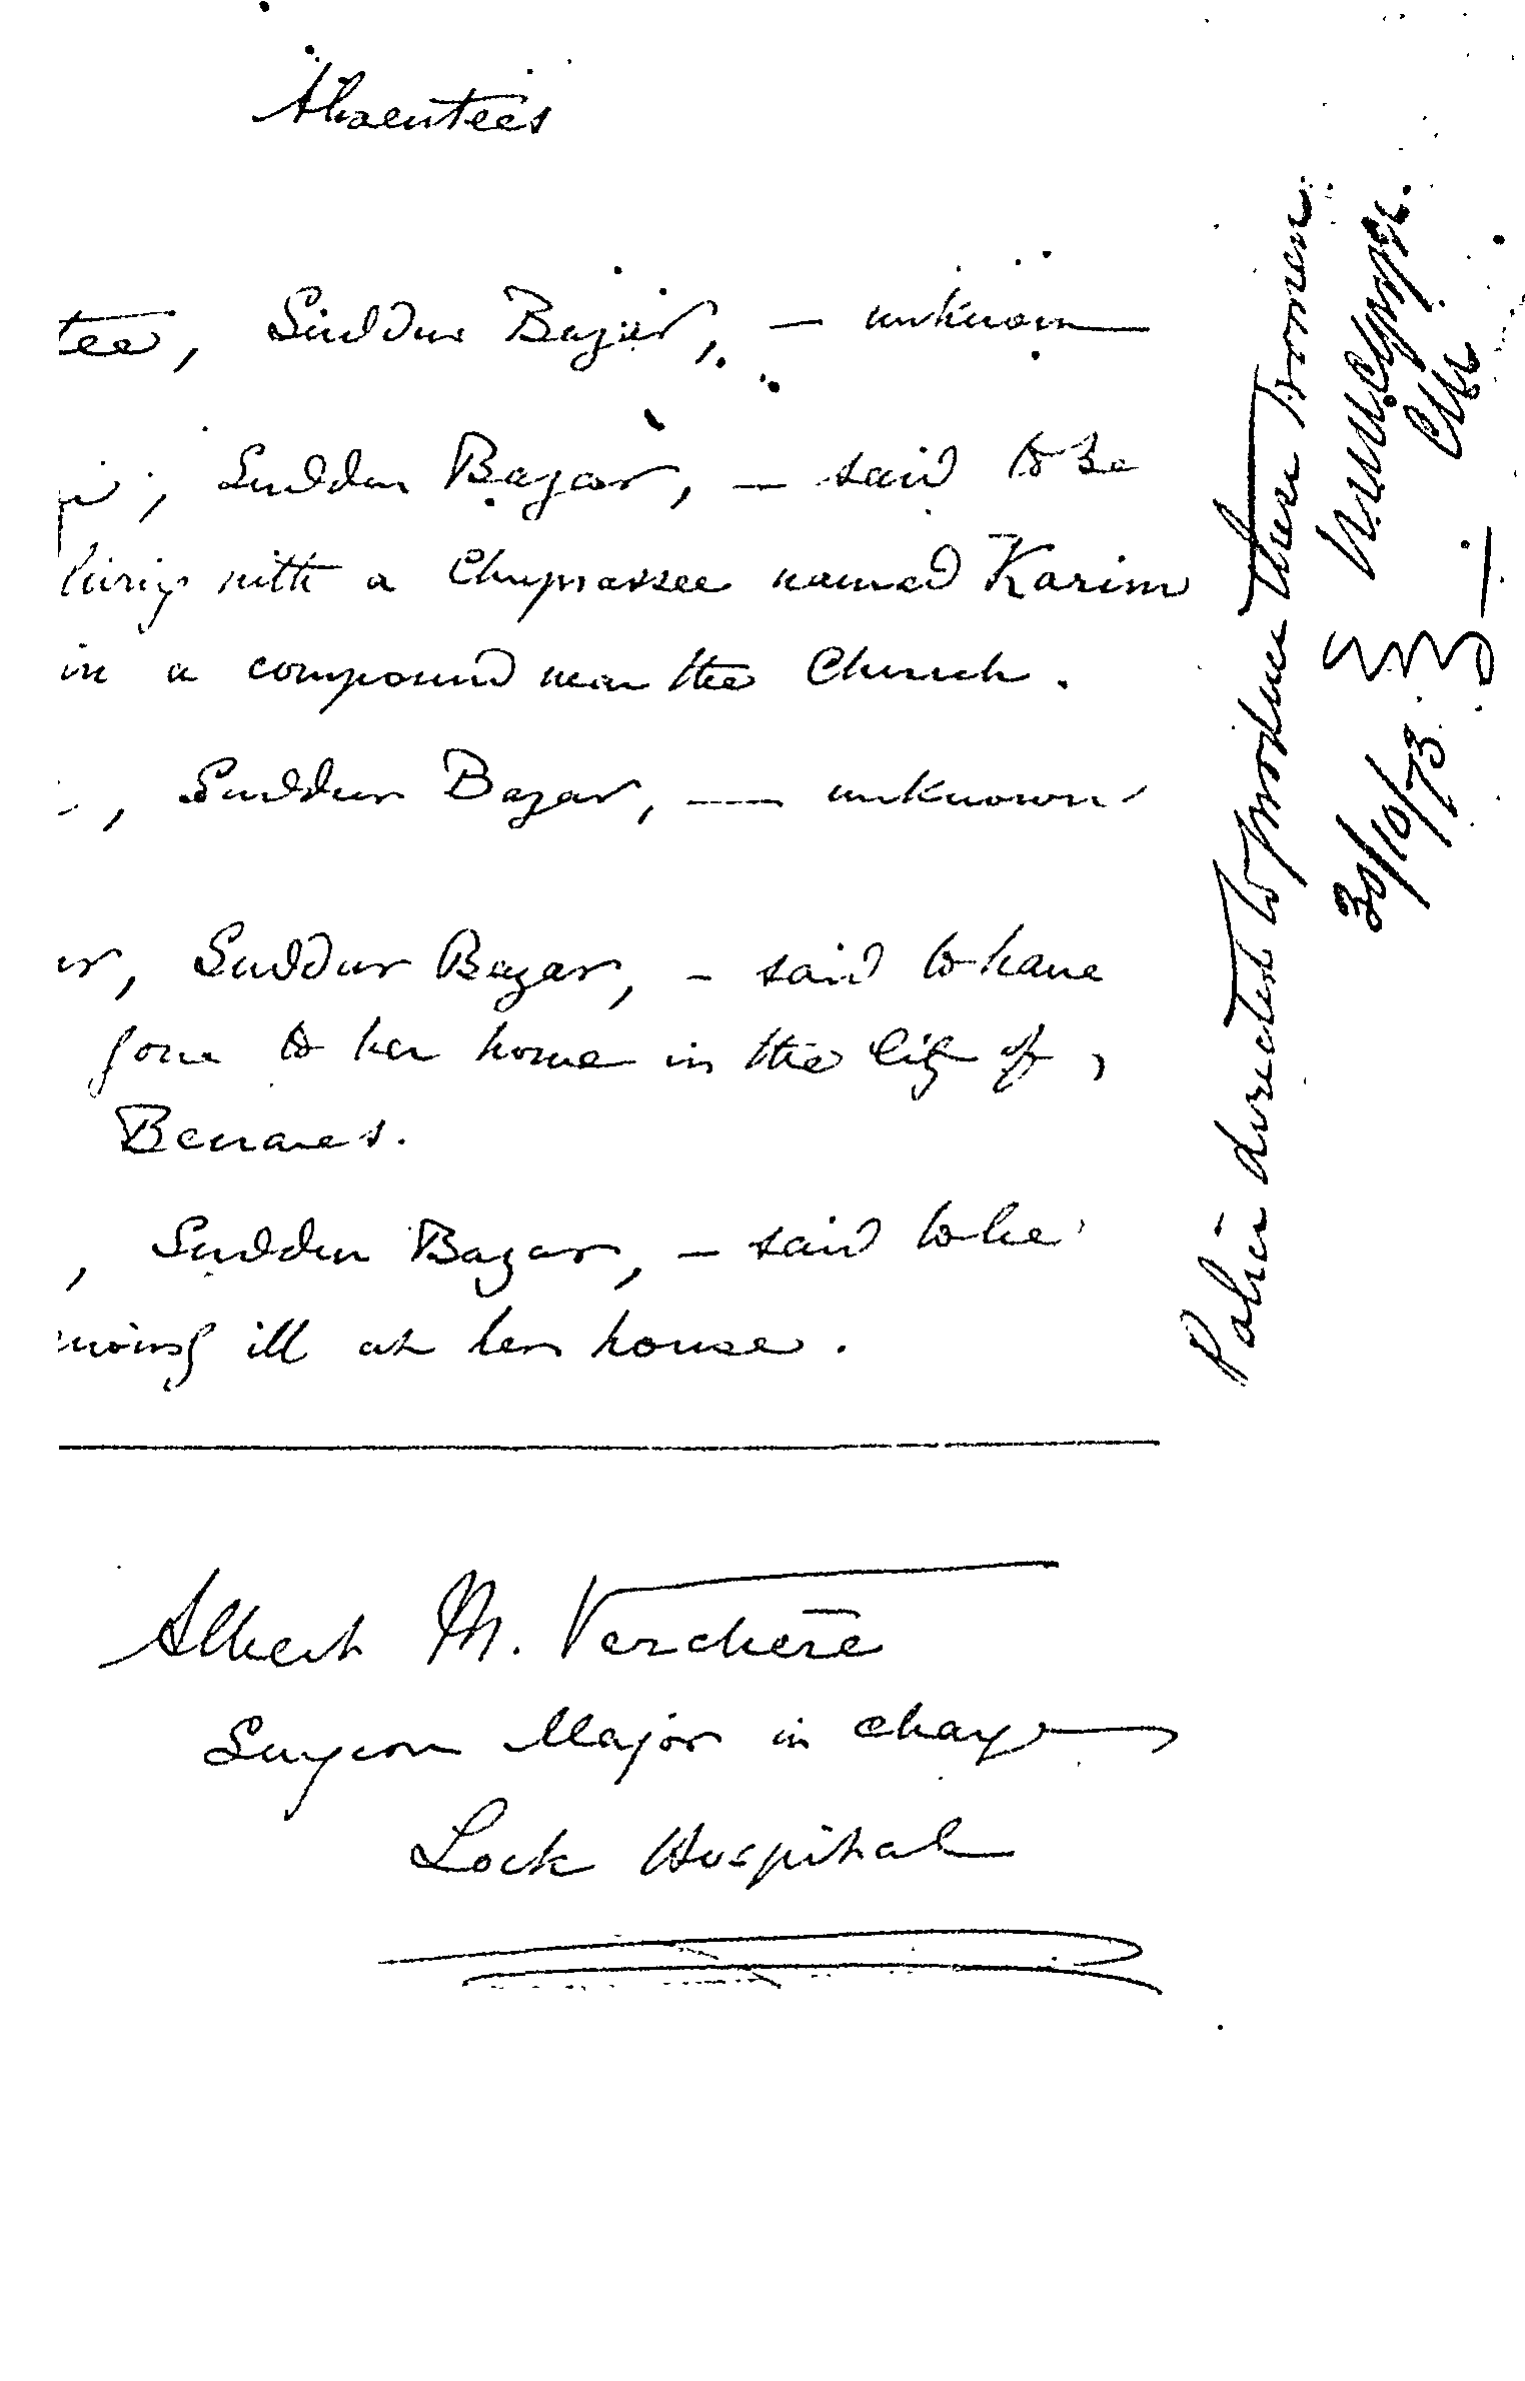 Absentees
tee, Suddur Bazar, — unknown
, Suddur Bazar, — said to be
living with a Chuprassee named Karim
in a compound near the Church.
, Suddur Bazar, — unknown
ur, Suddur Bazar, — said to have
gone to her home in the City of
Benares.
, Suddur Bazar, — said to be
ill at her house.
Albert M. Verchère
Surgeon Major in charge
Lock Hospital
Police directed to produce these women.
CM
30/10/73